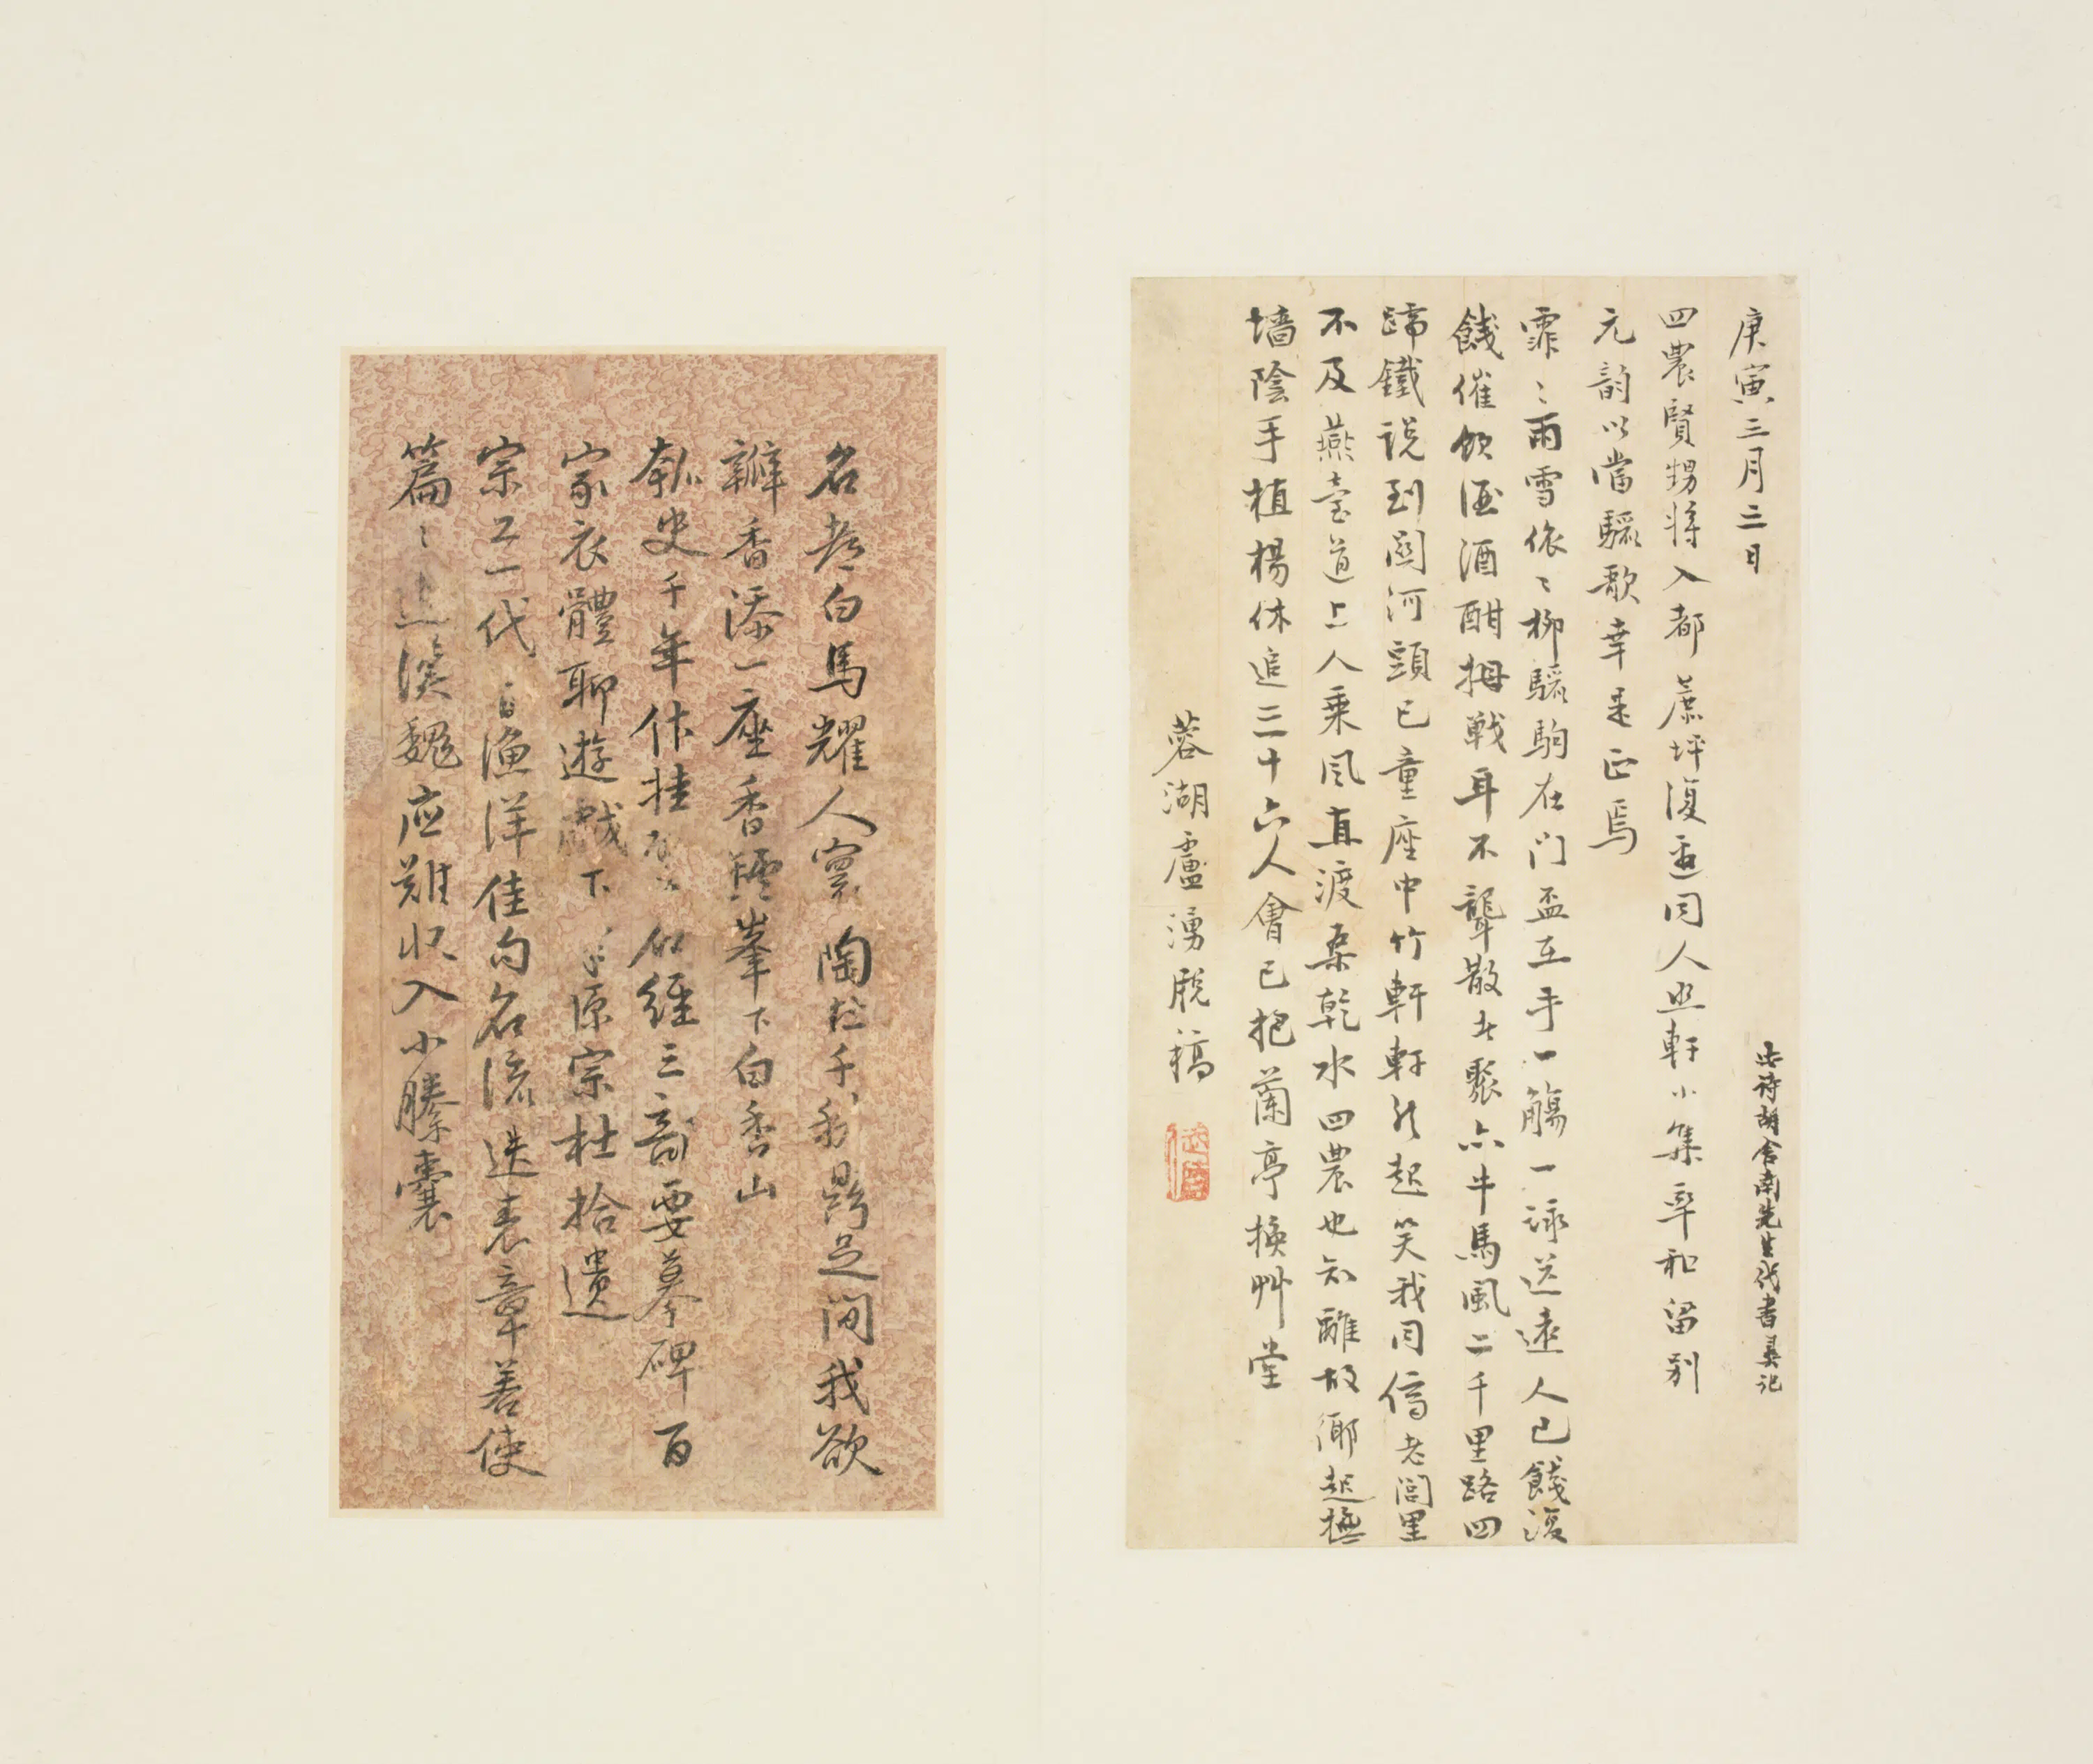 庚寅三月二日
此詩胡舍南先生代書
四農賢甥將入都蔗坪復邀同人坐軒小集率和留別
元韵以當驪歌幸是正焉
霏〻雨雪依〻柳驪駒在門盃在手一觴一詠送遠人已餞復
餞催飲酒酒酣拇戰耳不聾散者聚亦牛馬風二千里路四
蹄鐵說到關河頭已童座中竹軒軒然起笑我同儕老閭里
不及燕臺道上人乘風直渡桑乾水四農也知離故鄉起撫
墻陰手植楊休追三十六人會已把蘭亭換艸堂
蓉湖盧湧脫稿
名都白馬耀人寰陶杜千秋鼎足間我欲
瓣香添一座香爐峯下白香山
瓠史千年作佳 似經三部要摹碑百
家衣體聊遊戲下 原宗杜拾遺
宗工一代 漁洋佳句名流迭表章若使
篇〻追漢魏應難收入小縢囊